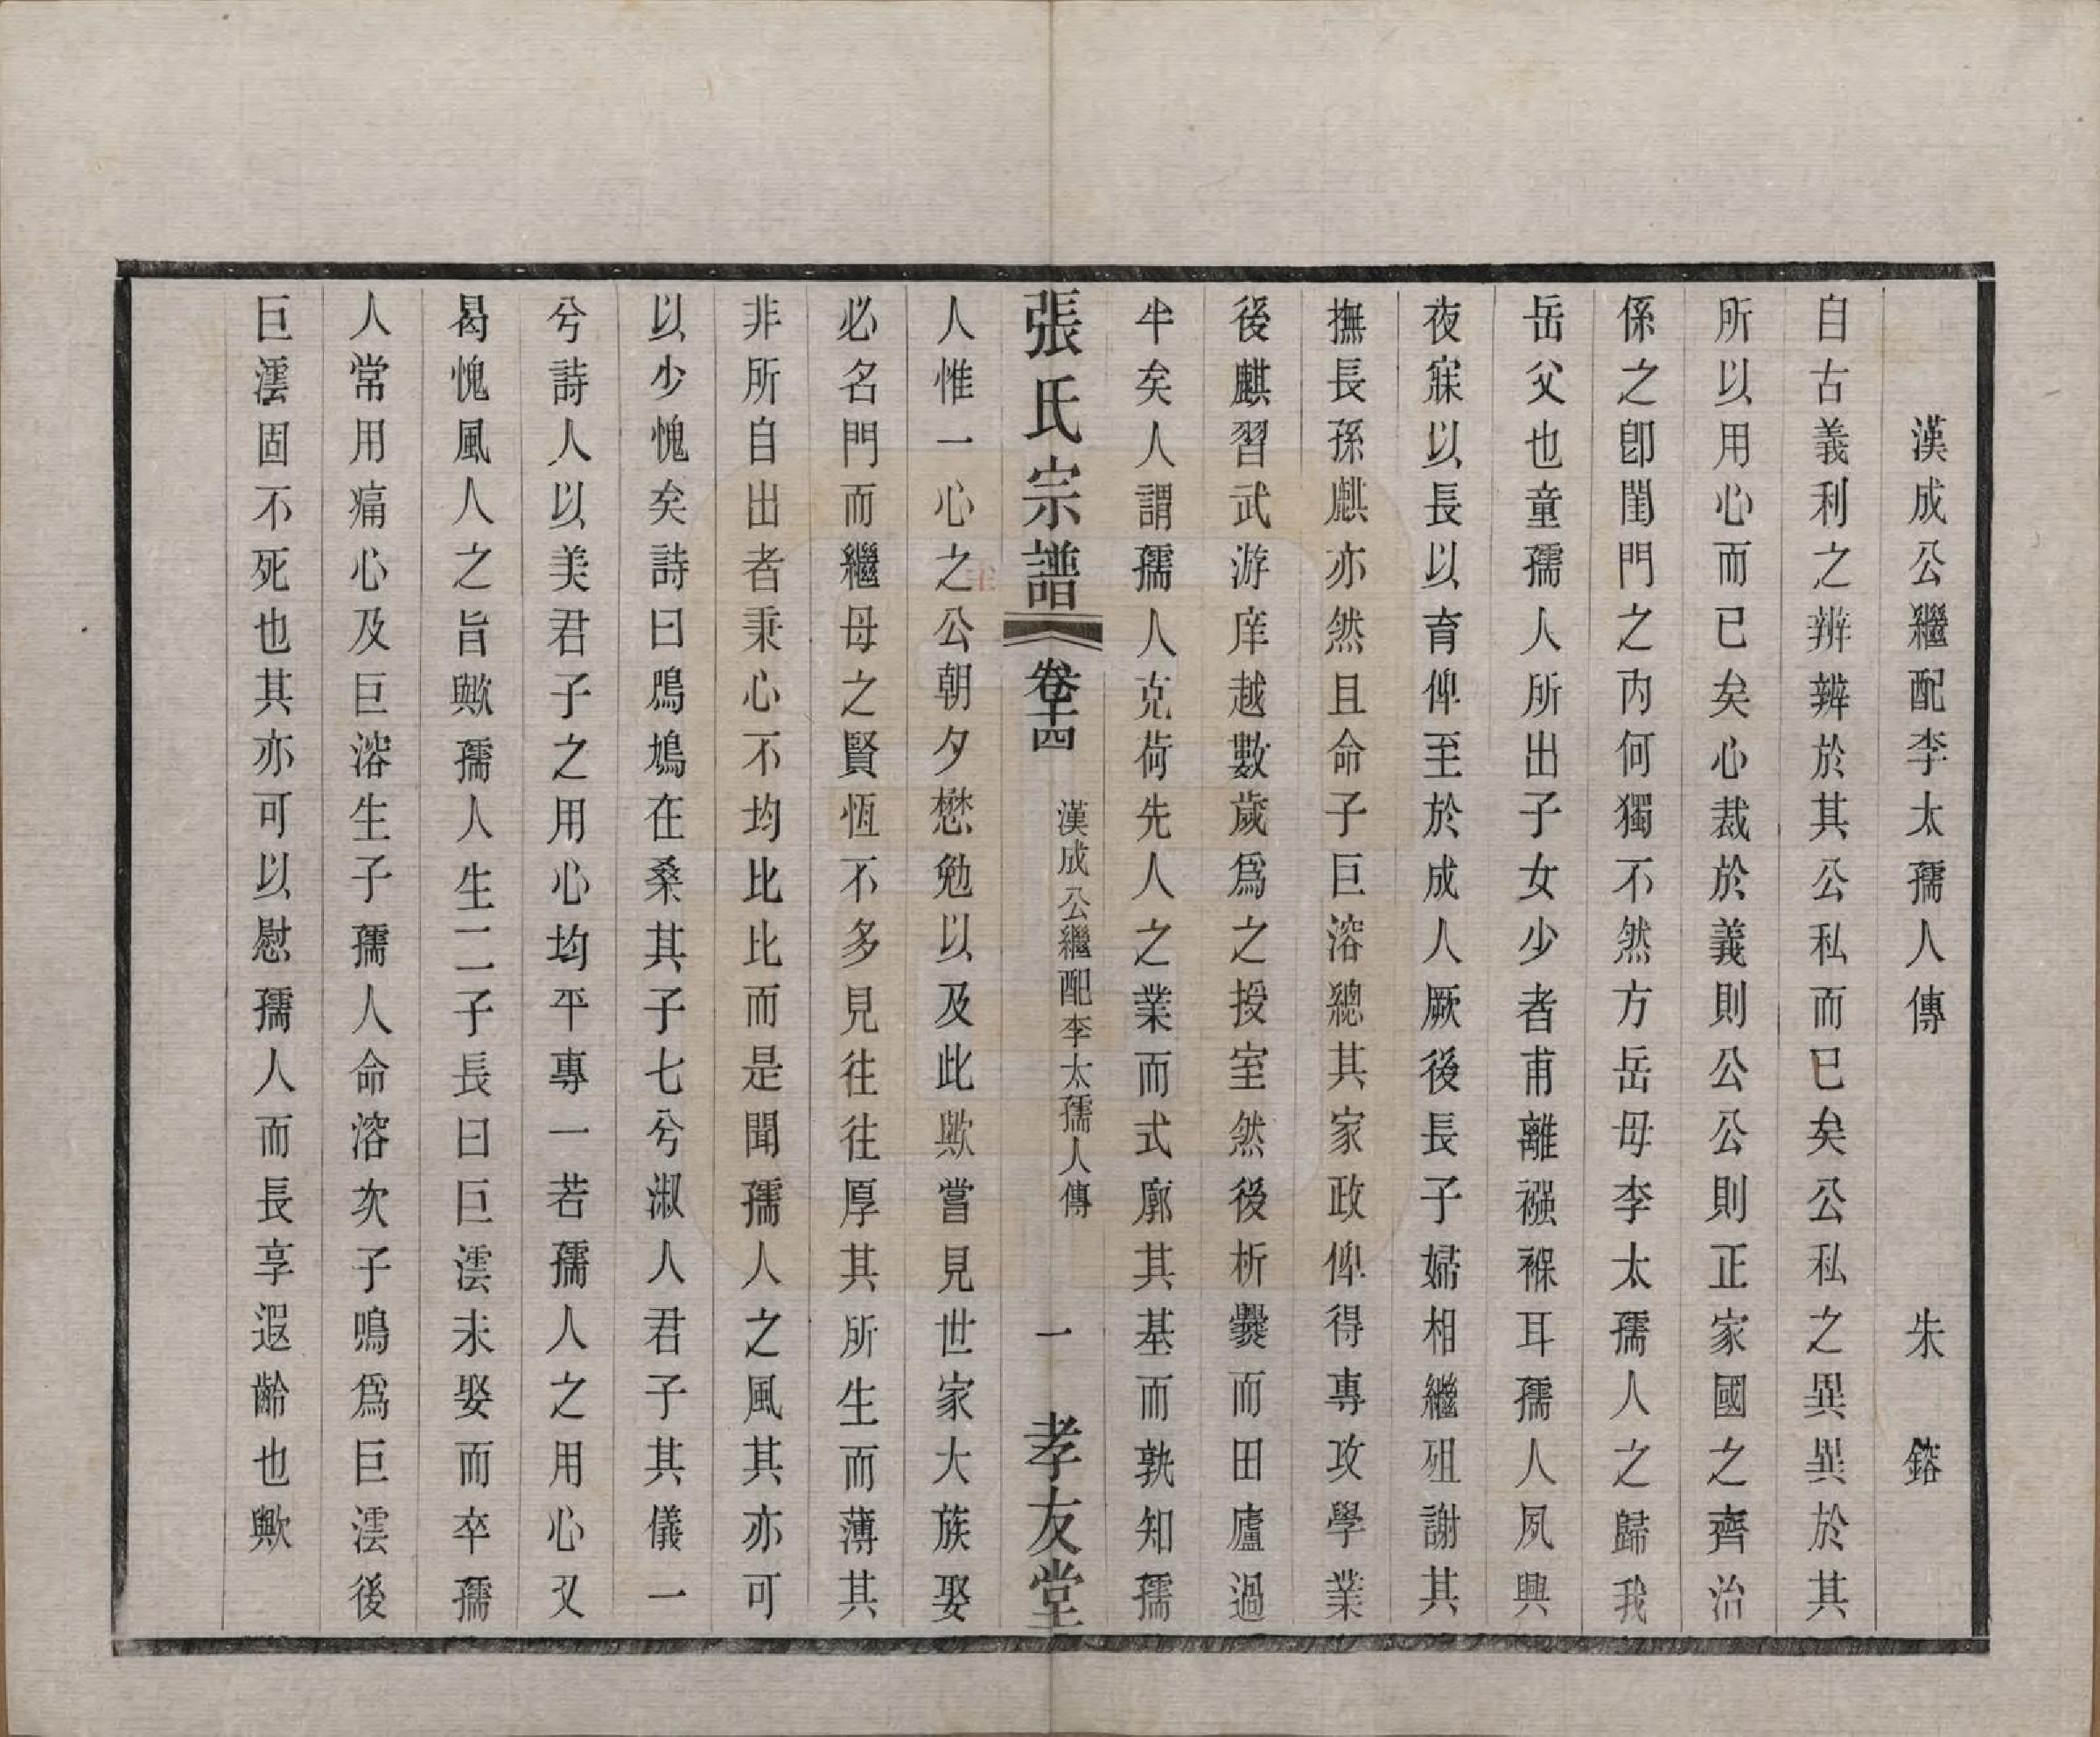 漢成公繼配李太孺人傳　朱鎔
自古義利之辨辨於其公私而已矣公私之異異於其
所以用心而已矣心裁於義則公公則正家國之齊治
係之卽閨門之內何獨不然方岳毋李太孺人之歸我
岳父也童孺人所出子女少者甫離襁褓耳孺人夙興
夜寐以長以育俾至於成人厥後長子婦相繼殂謝其
撫長孫麒亦然且命子巨溶總其家政俾得專攻學業
後麒習武游庠越數歲爲之授室然後析爨而田廬過
半矣人謂孺人克荷先人之業而式廓其基而孰知孺
張氏宗譜　卷十四　漢成公繼配李太孺人傳　一　孝友堂
人惟一心之公朝夕懋勉以及此歟嘗見世家大族娶
必名門而繼母之賢恆不多見往往厚其所生而薄其
非所自出者秉心不均比比而是聞孺人之風其亦可
以少愧矣詩曰鳲鳩在桑其子七兮淑人君子其儀一
兮詩人以美君子之用心均平專一若孺人之用心又
曷愧風人之旨歟孺人生二子長曰巨澐未娶而卒孺
人常用痛心及巨溶生子孺人命溶次子鳴爲巨澐後
巨澐固不死也其亦可以慰孺人而長享遐齡也歟